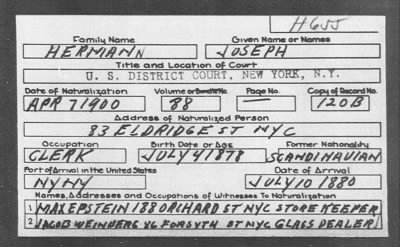 H655
Family Name Given Name or Names
HERMANN JOSEPH
Title and Location of Court
U. S. DISTRICT COURT, NEW YORK, N.Y.
Date of Naturalization Volume or Bundle No. Page No. Copy of Record No.
APR 7 1900 88 — 120B
Address of Naturalized Person
83 ELDRIDGE ST NYC
Occupation Birth Date or Age Former Nationality
CLERK JULY 4 1878 SCANDINAVIAN
Port of Arrival in the United States Date of Arrival
NY NY JULY 10 1880
Names, Addresses and Occupations of Witnesses To Naturalization
1 MAX EPSTEIN 188 ORCHARD ST NYC STORE KEEPER
2 JACOB WEINBERG 46 FORSYTH ST NYC GLASS DEALER